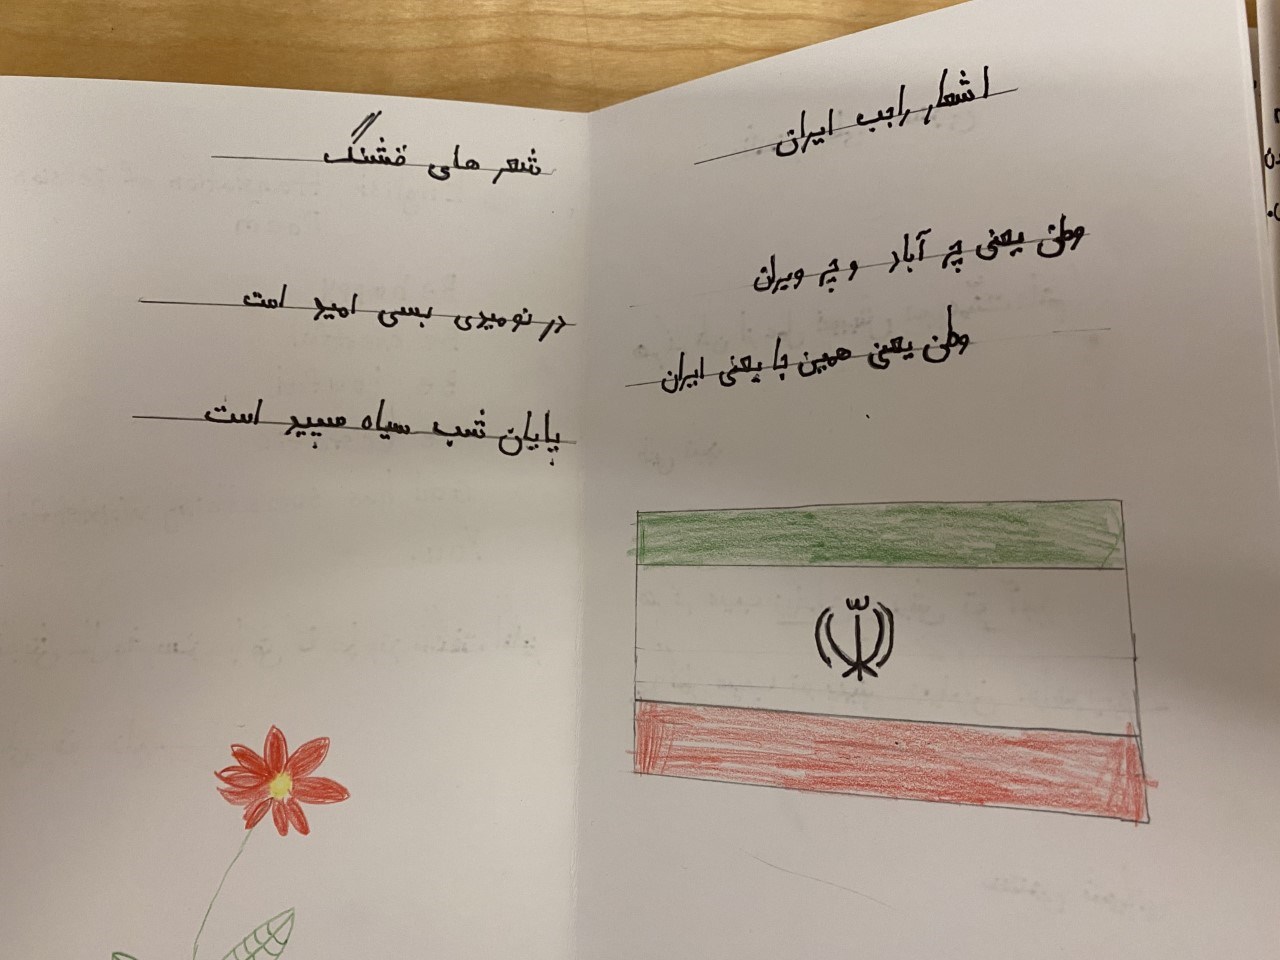 اشعار راجب ایران
وطن یعنی چه آباد و چه ویران
وطن یعنی همین جا یعنی ایران
شعر های قشنگ
در نومیدی بسی امید است
پایان شب سیاه سپید است